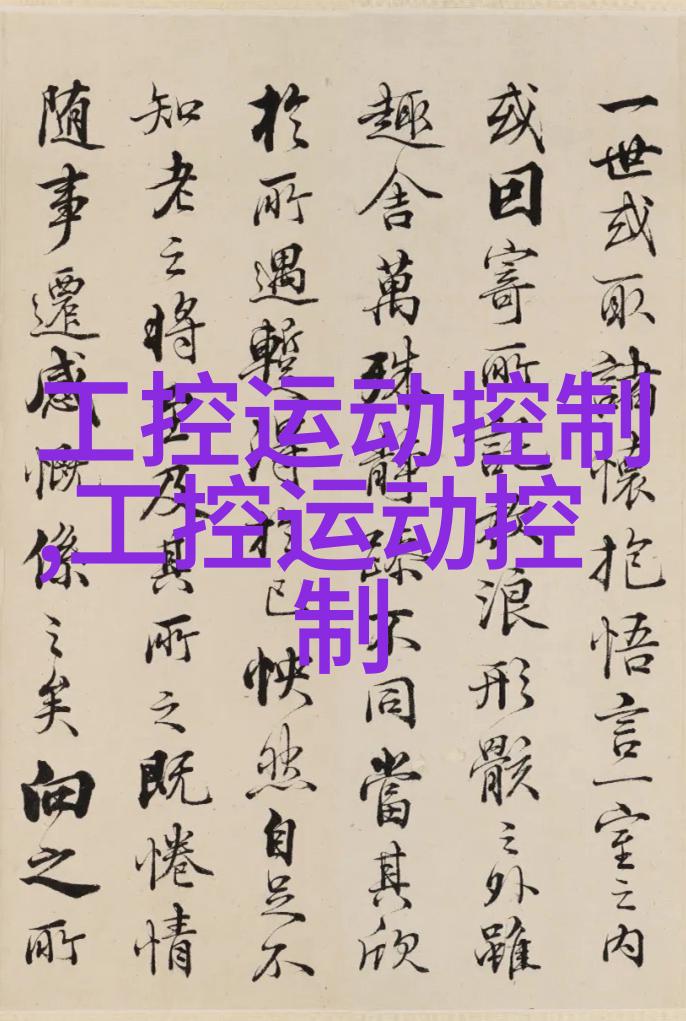 一世或取諸懷抱悟言一室之内
或因寄所託放浪形骸之外雖
趣舍萬殊靜躁不同當其欣
於所遇暫得於己怏然自足不
知老之將至及其所之既惓情
随事遷感慨係之矣向之所
工控运动控制
,工控运动控
制